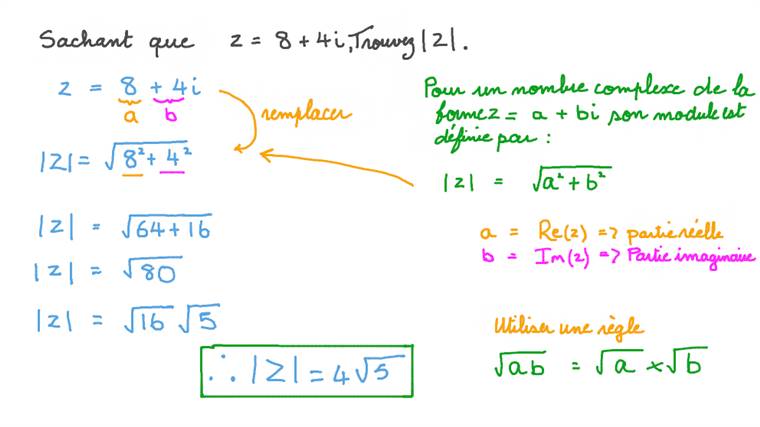 Sachant que z = 8 + 4i, Trouvez |z|.
z = 8 + 4i
a b
remplacer
|z| = √8² + 4²
|z| = √64 + 16
|z| = √80
|z| = √16 √5
∴ |z| = 4√5
Pour un nombre complexe de la
forme z = a + bi son module est
définie par :
|z| = √a² + b²
a = Re(z) => partie réelle
b = Im(z) => Partie imaginaire
Utiliser une règle
√ab = √a × √b